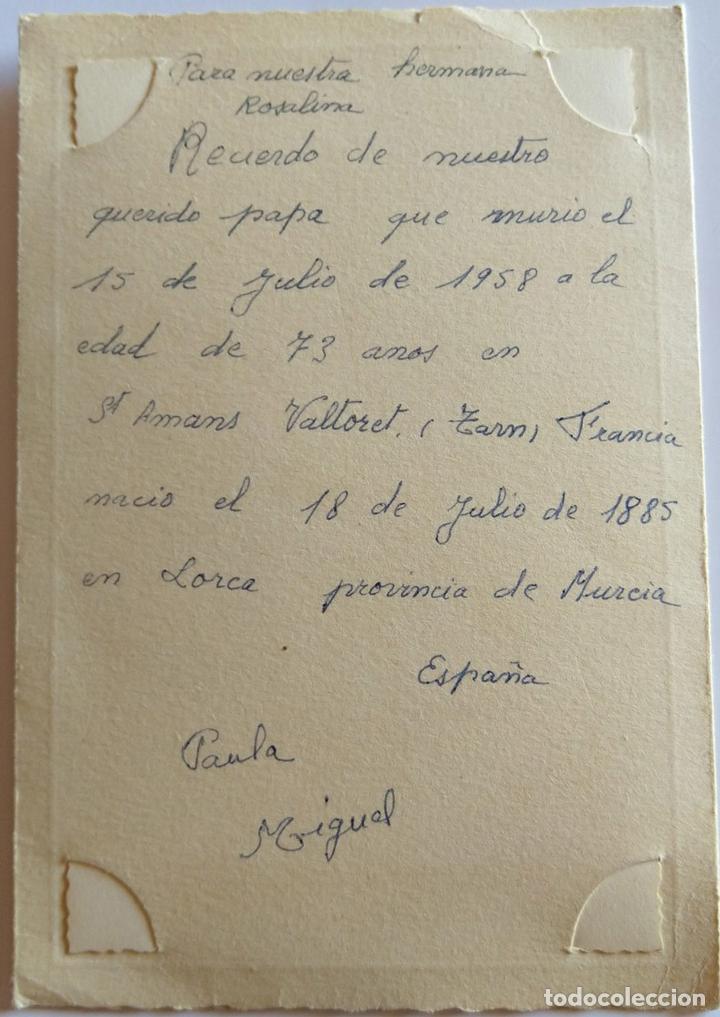 Para nuestra hermana
Rosalina
Recuerdo de nuestro
querido papa que murio el
15 de Julio de 1958 a la
edad de 73 anos en
St Amans Valtoret, (Tarn) Francia
nacio el 18 de Julio de 1885
en Lorca provincia de Murcia
España
Paula
Miguel
todocoleccion